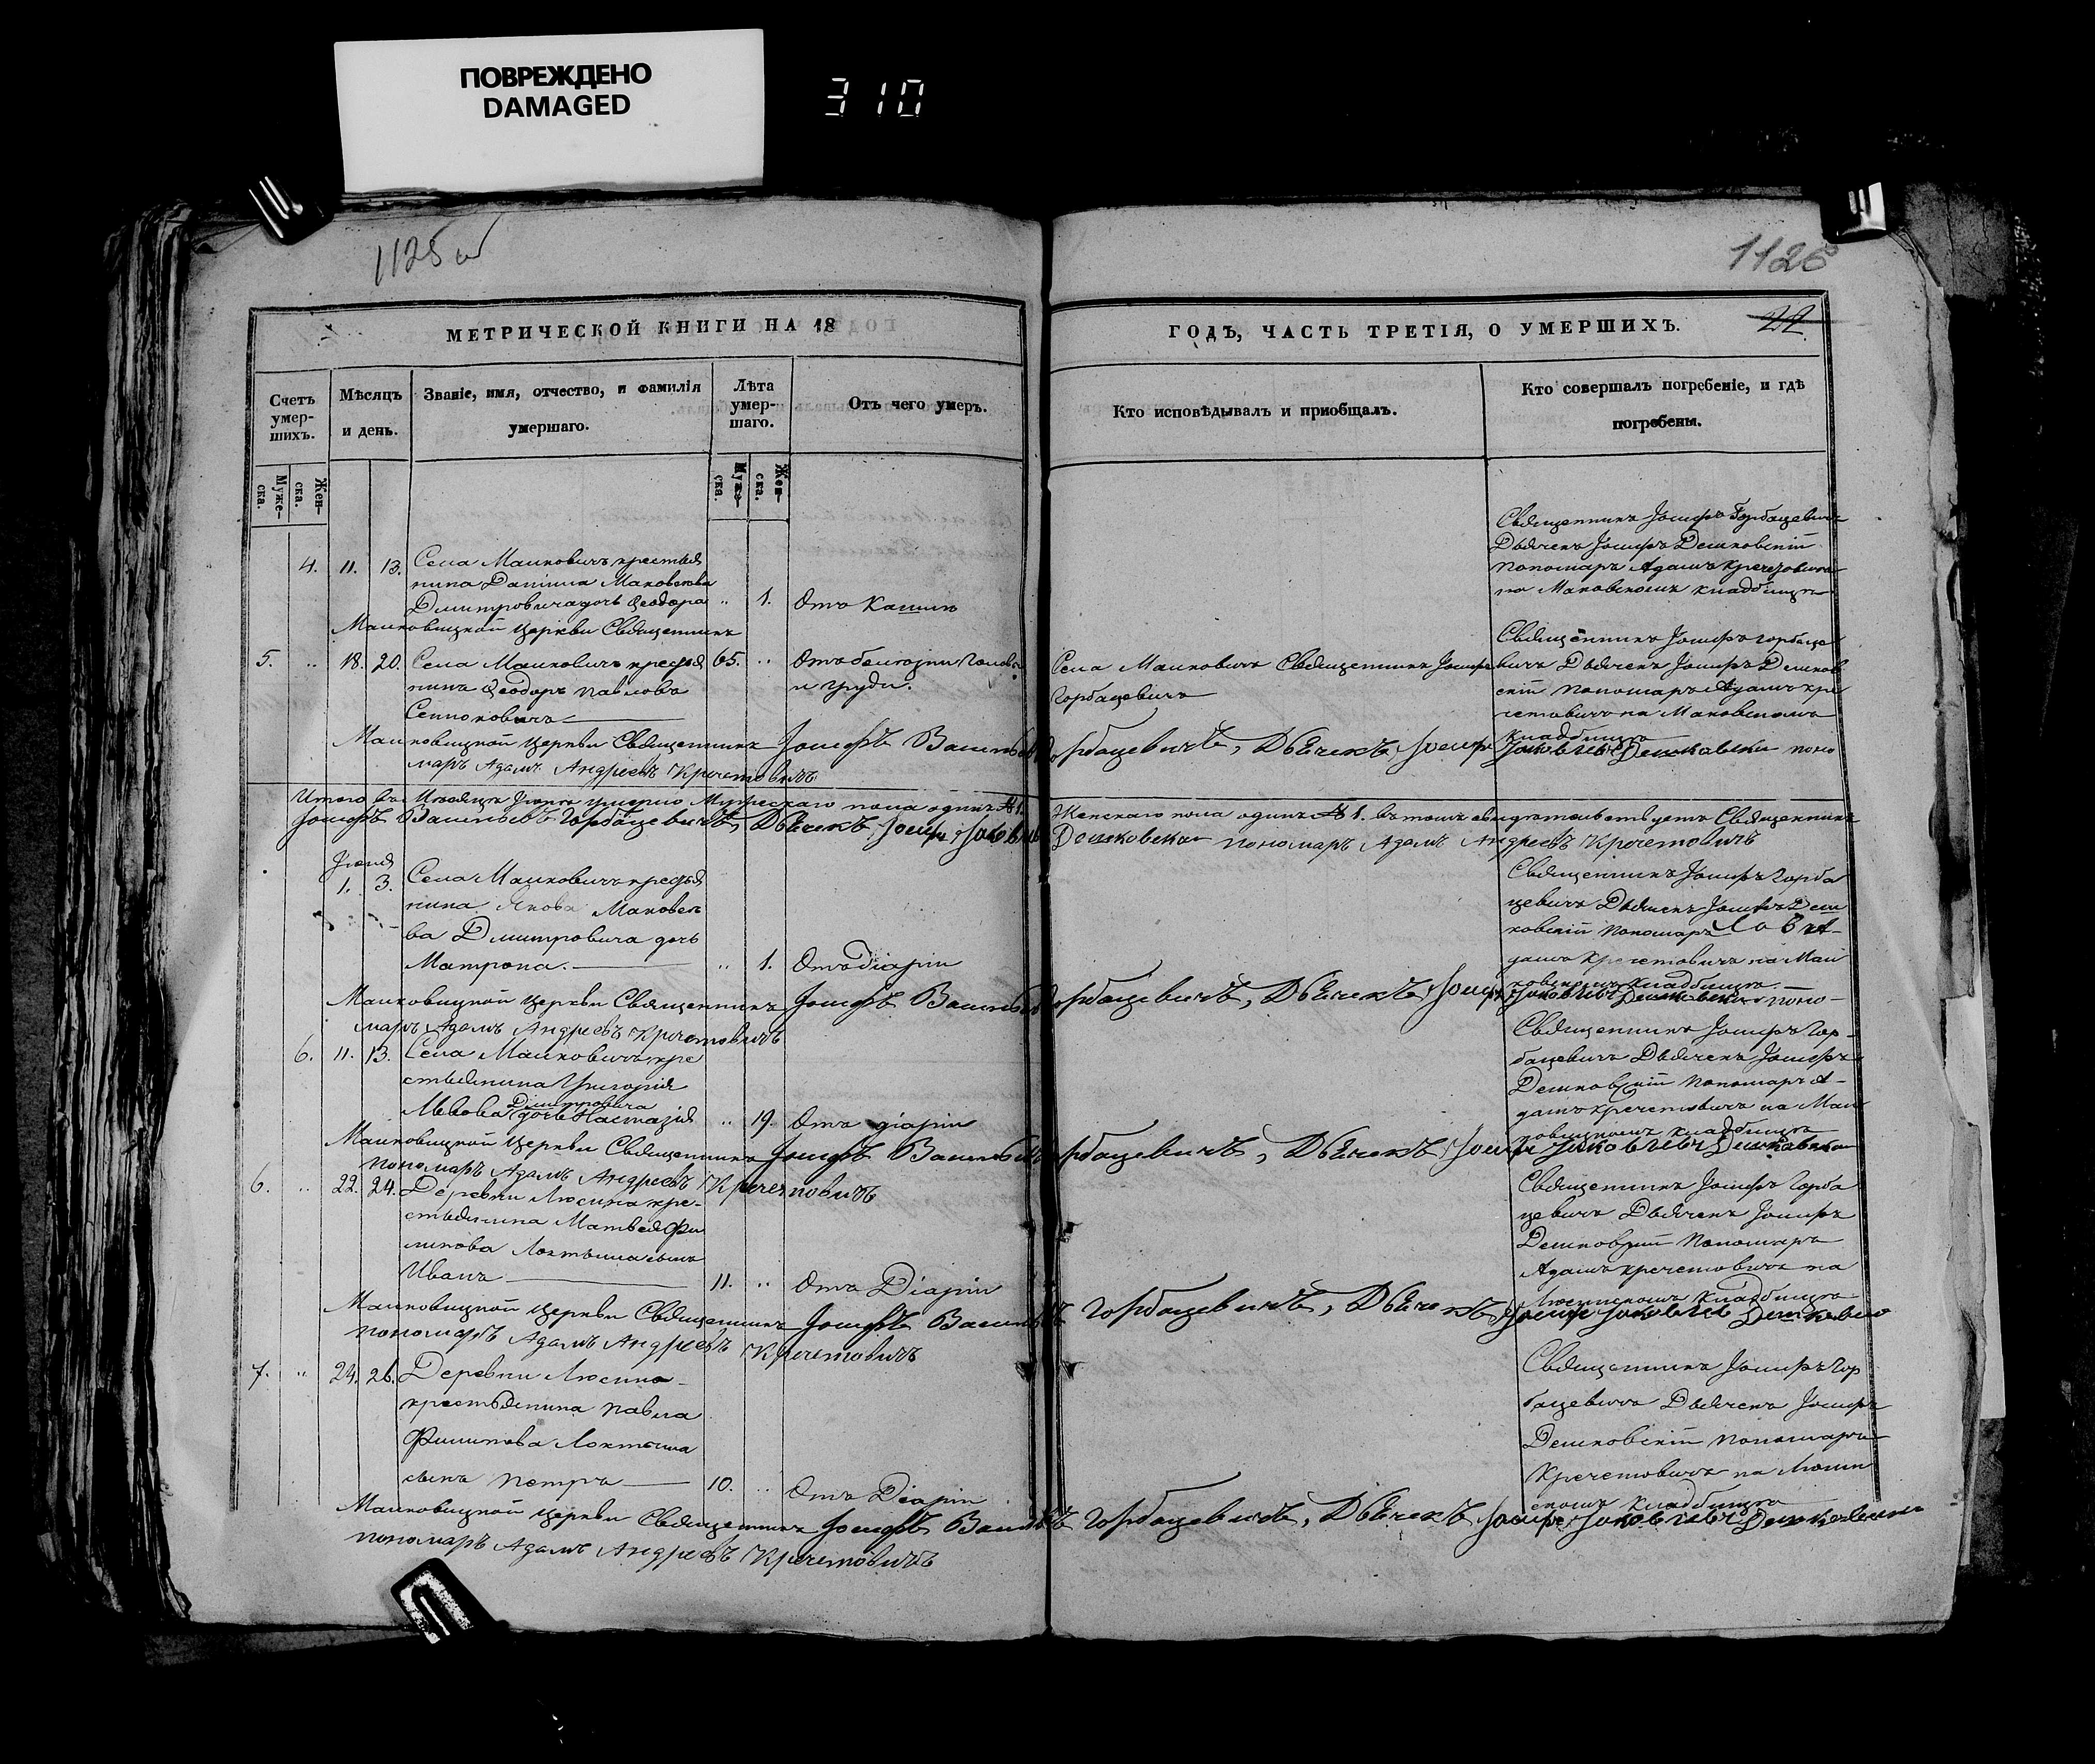 ПОВРЕЖДЕНО
DAMAGED
310
1125 об
1126
22
МЕТРИЧЕСКОЙ КНИГИ НА 18
ГОДЪ, ЧАСТЬ ТРЕТІЯ, О УМЕРШИХЪ.
Счетъ умер-
шихъ.
Мѣсяцъ
и день.
Званіе, имя, отчество, и фамилія
умершаго.
Лѣта
умер-
шаго.
Отъ чего умеръ.
Кто исповѣдывалъ и пріобщалъ.
Кто совершалъ погребеніе, и гдѣ
погребены.
Муже-
ска.
Жен-
ска.
Муже-
ска.
Жен-
ска.
4. 11. 13. Села Малковичъ крестья
нина Даніила Маковскова
Дмитровича дочь Ѳеодора " 1. Отъ Кашлю
Священникъ Іосифъ Горбацевичъ
Дьячекъ Іосифъ Дешковскій
Пономарь Адамъ Кречетовичъ
на Маковскомъ кладбищѣ
Малковицкой Церкви Священникъ
5. " 18. 20. Села Малковичъ крестья 65. " Отъ болезни головы
нинъ Ѳеодоръ Павловъ и груди.
Сенюковичъ
Села Малковичъ Священникъ Іосифъ
Горбацевичъ
Священникъ Іосифъ Горбаце
вичъ Дьячекъ Іосифъ Дешков
скій Пономарь Адамъ Кре
четовичъ на Маковскомъ
кладбищѣ
Малковицкой Церкви Священникъ Іосифъ Васильевъ Горбацевичъ, Дьячекъ Іосифъ Яковлевъ Дешковскій поно
марь Адамъ Андреевъ Кречетовичъ
Итого въ Месяце Іюнѣ умерло Мужескаго пола одинъ № 1. Женскаго пола одинъ № 1. въ томъ свидѣтельствуетъ Священникъ
Іосифъ Васильевъ Горбацевичъ, Дьячекъ Іосифъ Яковлевъ Дешковскій пономарь Адамъ Андреевъ Кречетовичъ
Іюля
1. 3. Села Малковичъ крестья
нина Якова Маковско
ва Дмитровича дочь
Матрона. " 1. Отъ Діаріи
Священникъ Іосифъ Горба
цевичъ Дьячекъ Іосифъ Деш
ковскій Пономарь А-
дамъ Кречетовичъ на Мал
ковскомъ кладбищѣ
Малковицкой Церкви Священникъ Іосифъ Васильевъ Горбацевичъ, Дьячекъ Іосифъ Яковлевъ Дешковскій поно-
марь Адамъ Андреевъ Кречетовичъ
6. 11. 13. Села Малковичъ кре
стьянина Григорія
Дмитровича
Львова дочь Настазія " 19. Отъ діаріи
Священникъ Іосифъ Гор-
бацевичъ Дьячекъ Іосифъ
Дешковскій Пономарь А-
дамъ Кречетовичъ на Мал
ковицкомъ кладбищѣ
Малковицкой Церкви Священникъ Іосифъ Васильевъ Горбацевичъ, Дьячекъ Іосифъ Яковлевъ Дешковскій
пономарь Адамъ Андреевъ Кречетовичъ
6. " 22. 24. Деревни Люсина кре-
стьянина Матвея Фи
липова Локтыша сынъ
Иванъ 11. " Отъ Діаріи
Священникъ Іосифъ Горба
цевичъ Дьячекъ Іосифъ
Дешковскій Пономарь
Адамъ Кречетовичъ на
Люсинскомъ Кладбищѣ
Малковицкой Церкви Священникъ Іосифъ Васильевъ Горбацевичъ, Дьячекъ Іосифъ Яковлевъ Дешковскій
пономарь Адамъ Андреевъ Кречетовичъ
7. " 24. 26. Деревни Люсина
крестьянина Павла
Филипова Локтыша
сынъ Петръ 10. " Отъ Діаріи
Священникъ Іосифъ Гор
бацевичъ Дьячекъ Іосифъ
Дешковскій Пономарь
Кречетовичъ на Люсин
скомъ Кладбищѣ
Малковицкой Церкви Священникъ Іосифъ Васильевъ Горбацевичъ, Дьячекъ Іосифъ Яковлевъ Дешковскій
пономарь Адамъ Андреевъ Кречетовичъ